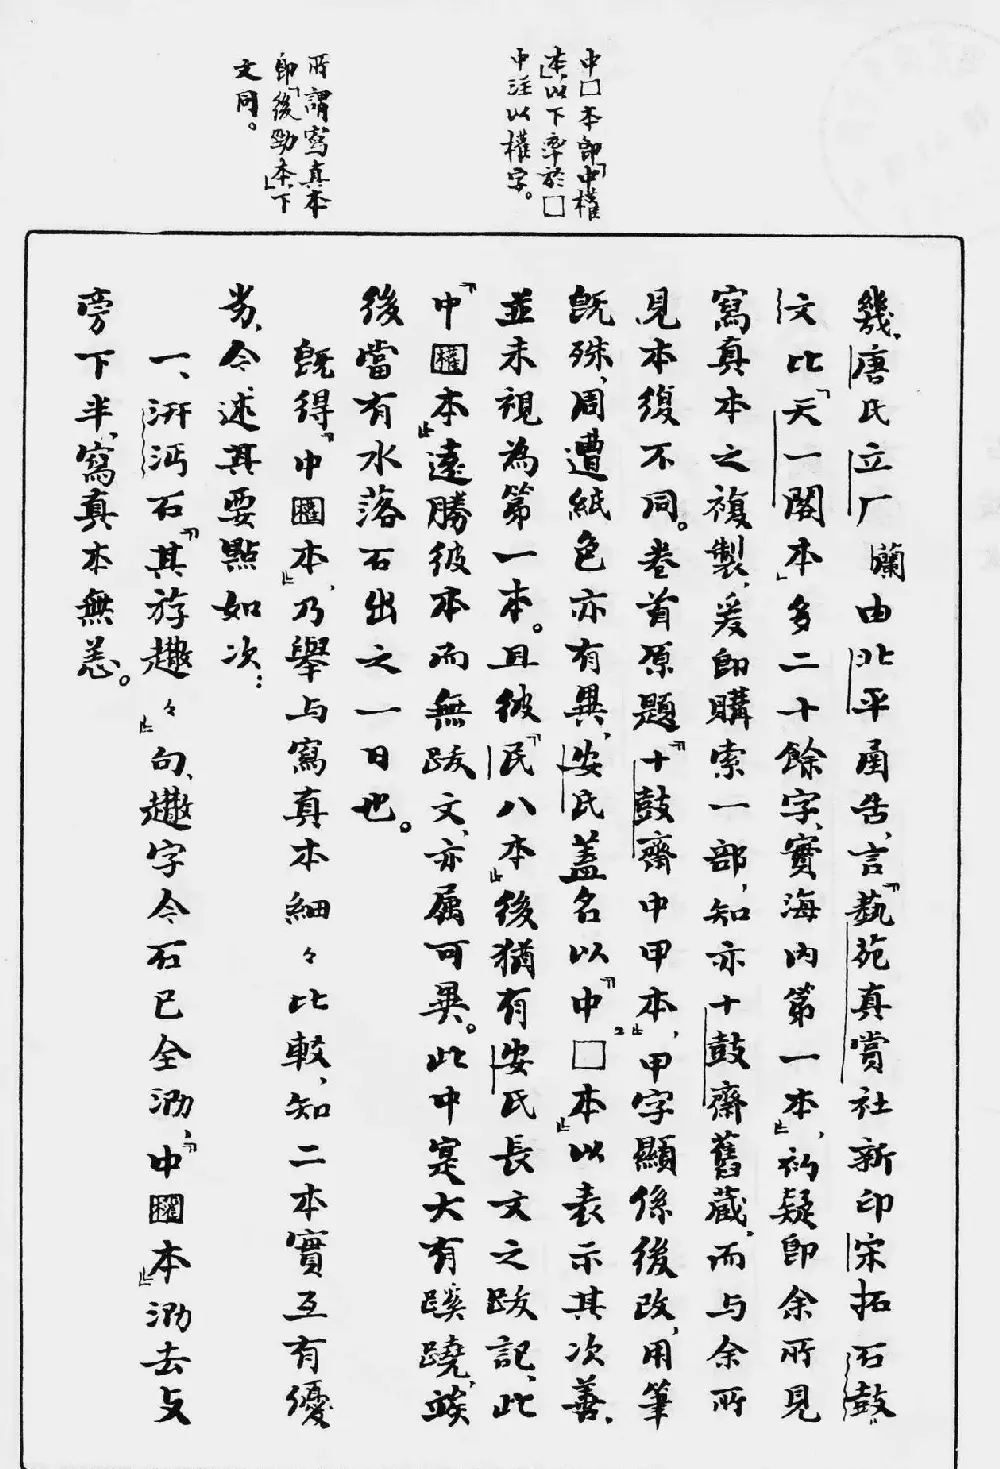 中□本即「中權
本」，以下率於□
中注以權字。
所謂寫真本
即「後勁本」，下
文同。
幾，唐氏立厂蘭由北平函告，言「藝苑真賞社新印宋拓石鼓
文比「天一閣本」多二十餘字，實海內第一本」，初疑即余所見
寫真本之複製，爰即購索一部，知亦十鼓齋舊藏，而与余所
見本復不同。卷首原題「十鼓齋中甲本」，甲字顯係後改，用筆
既殊，周遭紙色亦有異，安氏蓋名以「中□本」以表示其次善，
並未視為第一本。且彼「民八本」後猶有安氏長文之跋記，此
「中權本」遠勝彼本而無跋文，亦屬可異。此中寔大有蹊蹺，諒
後當有水落石出之一日也。
既得「中權本」，乃舉与寫真本細々比較，知二本實互有優
劣，今述其要點如次：
一、汧沔石「其游趣々」句，趣字今石已全泐，「中權本」泐去攵
旁下半，寫真本無恙。